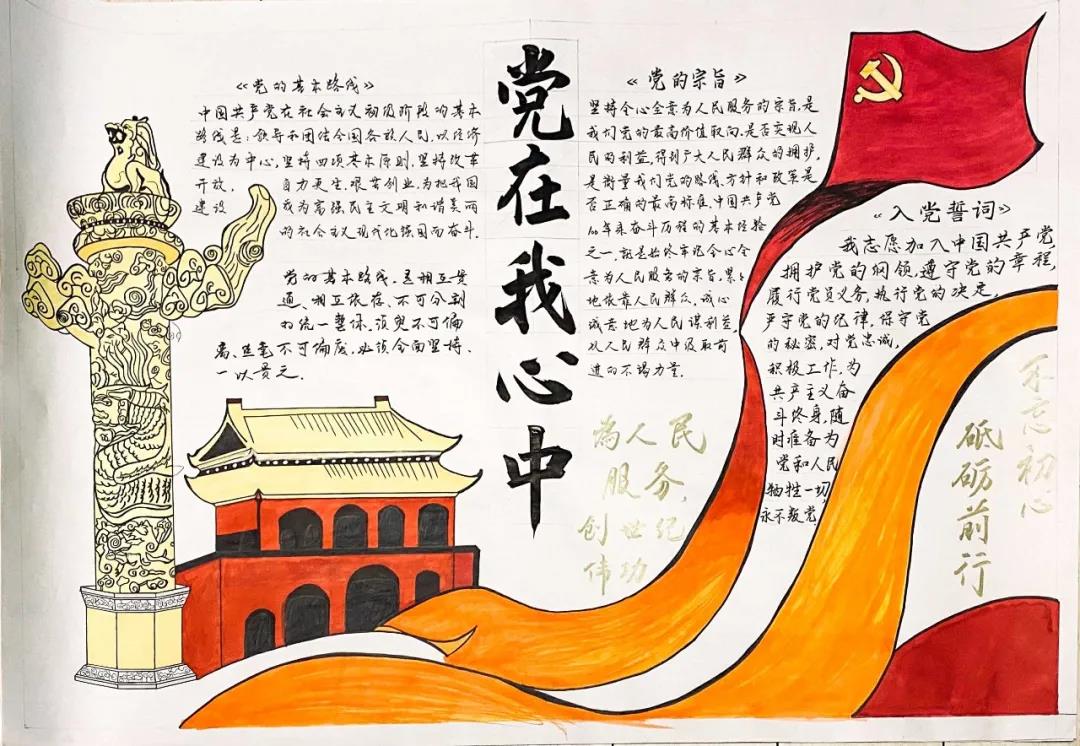 《党的基本路线》
中国共产党在社会主义初级阶段的基本
路线是：领导和团结全国各族人民，以经济
建设为中心，坚持四项基本原则，坚持改革
开放，自力更生，艰苦创业，为把我国
建设成为高强民主文明和谐美丽
的社会主义现代化强国而奋斗．
党的基本路线，是相互贯
通、相互依存、不可分割
的统一整体，须臾不可偏
离、丝毫不可偏废，必须全面坚持、
一以贯之．
党在我心中
《党的宗旨》
坚持全心全意为人民服务的宗旨，是
我们党的最高价值取向，是否实现人
民的利益，得到广大人民群众的拥护，
是衡量我们党的路线、方针和政策是
否正确的最高标准，中国共产党
100年来奋斗历程的基本经验
之一，就是始终牢记全心全
意为人民服务的宗旨，紧紧
地依靠人民群众，诚心
诚意地为人民谋利益，
从人民群众中汲取前
进的不竭力量．
为人民
服务，
创世纪
伟功
《入党誓词》
我志愿加入中国共产党，
拥护党的纲领，遵守党的章程，
履行党员义务，执行党的决定，
严守党的纪律，保守党
的秘密，对党忠诚，
积极工作，为
共产主义奋
斗终身，随
时准备为
党和人民
牺牲一切，
永不叛党
不忘初心
砥砺前行